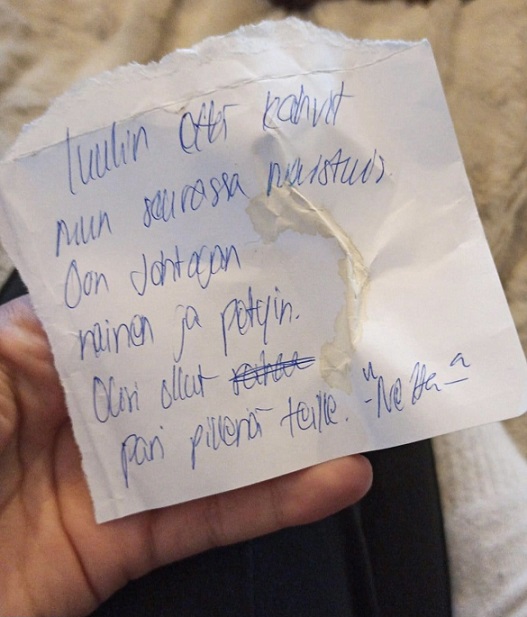 luulin että kahvit
mun seurassa maistuis.
Oon Johtajan
nainen ja petyin.
Olisi ollut
pari pikeriä teille. -"Netta"